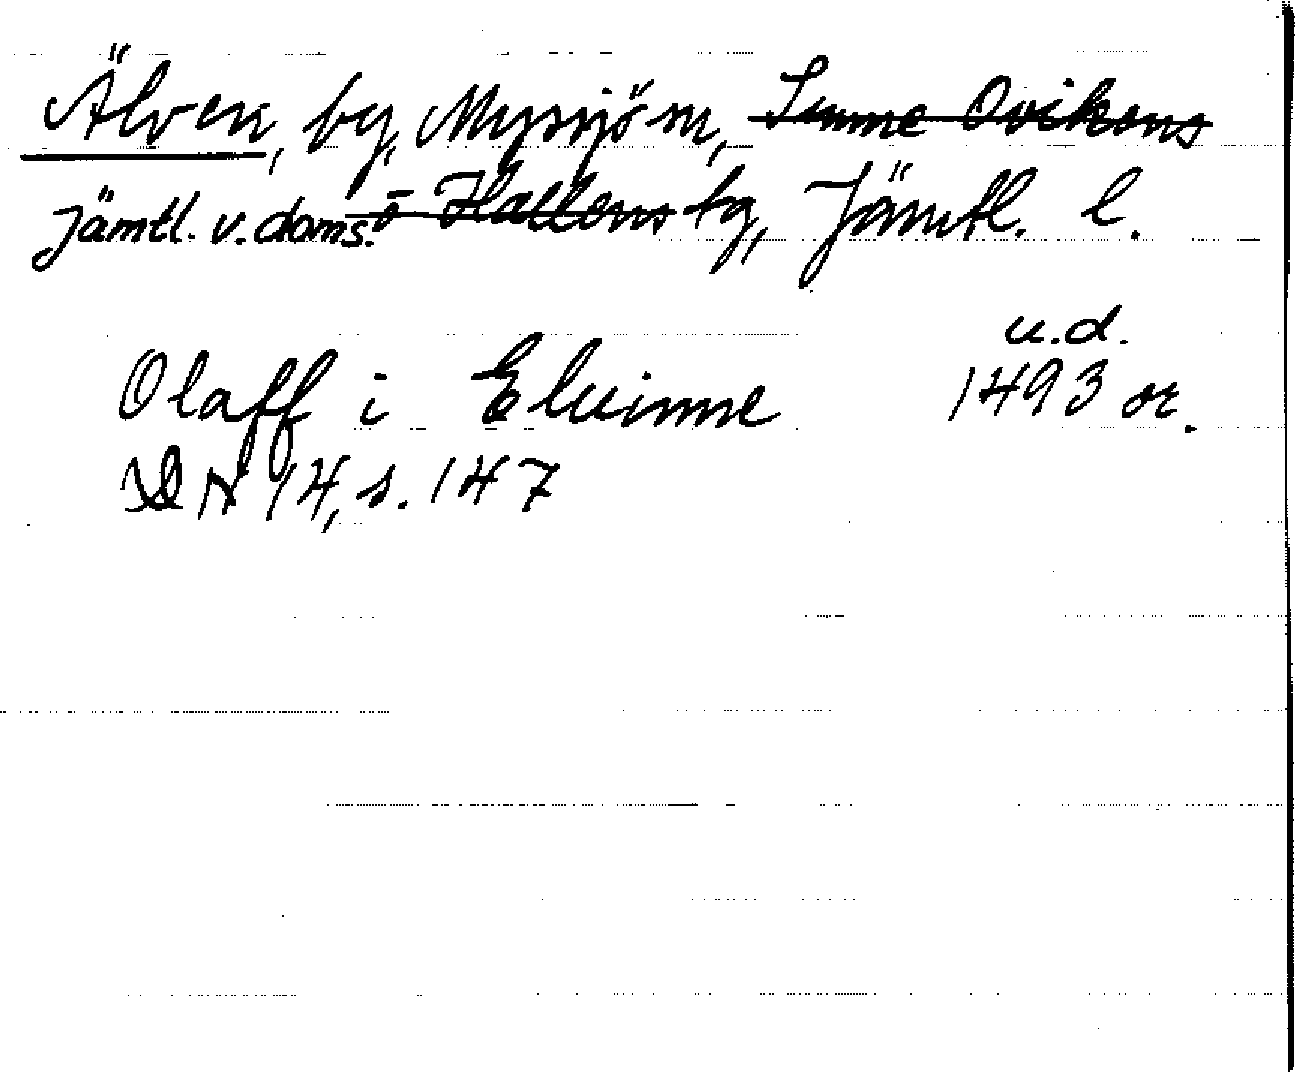 Älven, by, Myssjö sn, Sunne Ovikens
Jämtl. v. doms. o Hallens tg, Jämtl. l.
u.d.
Olaff i Eluinne 1493 or.
DN 14, s. 147